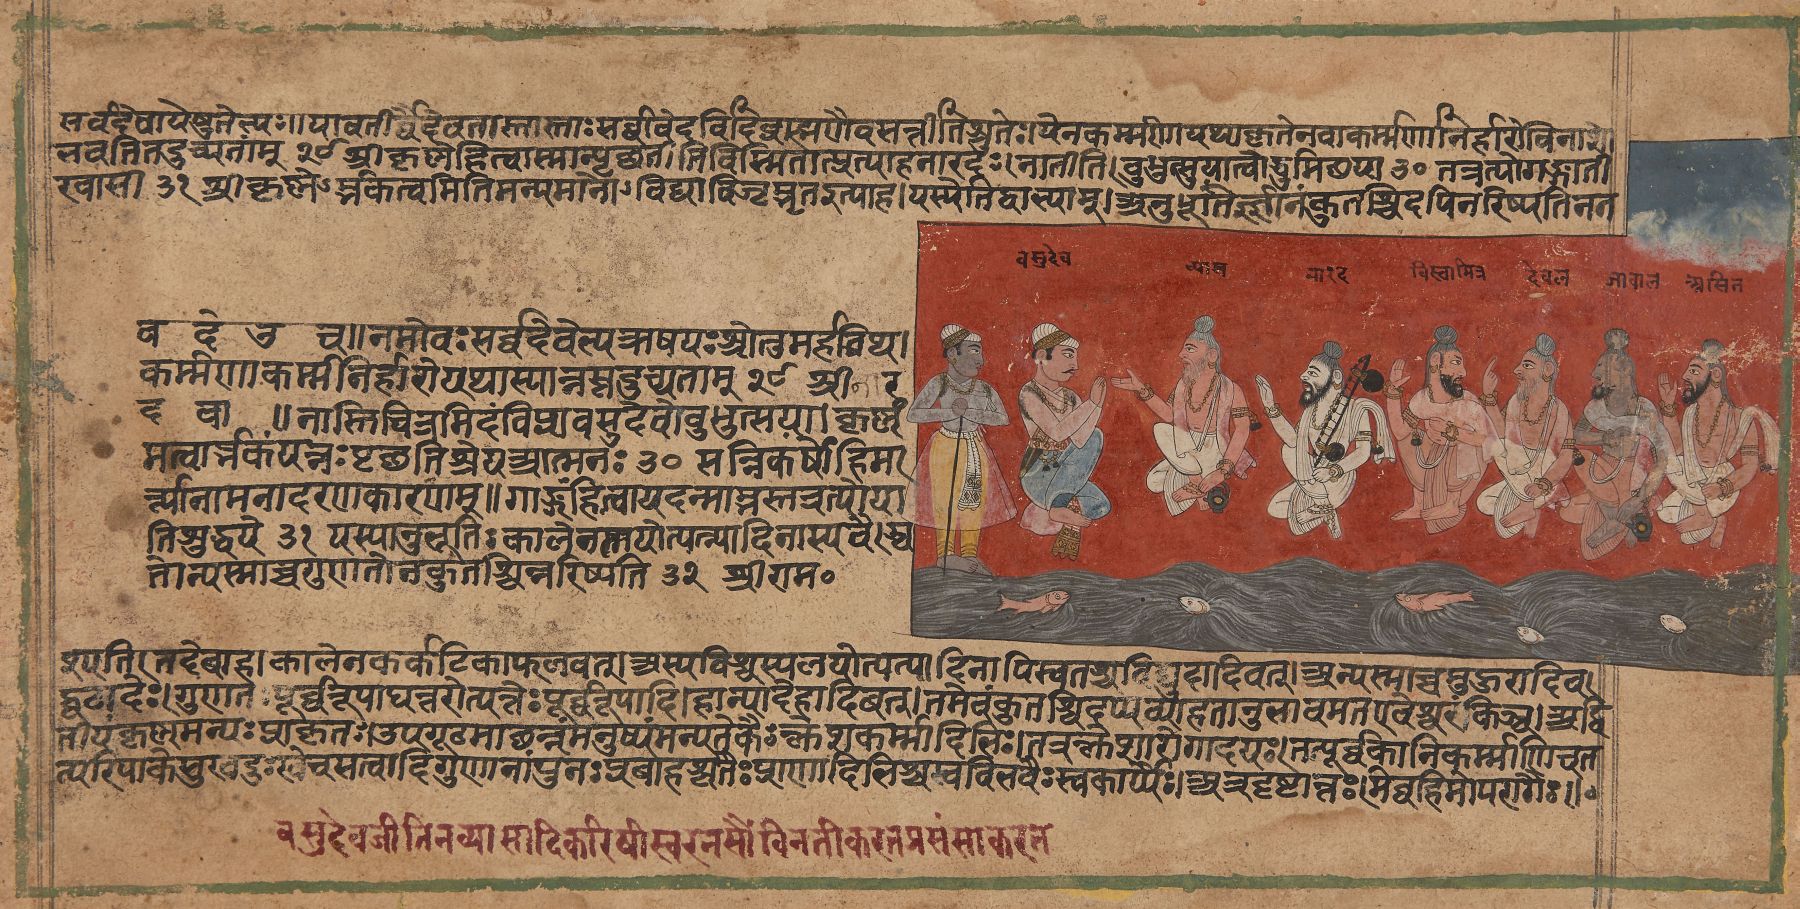 सर्वदेवा येषु तेभ्यः॥ यावतीर्वै देवतास्तास्ताः सर्वा वेदविदि ब्राह्मणे वसन्तीति श्रुतेः। येन कर्म्मणा यथा कृतेन वा कर्म्मणां निर्हारो विनाशो
भवति तदुच्यताम् २९ श्रीकृष्णं हित्वास्मान्पृच्छति विस्मितान्प्रत्याह नारदः। नातीति। बुभुत्सुया ३० तत्रत्यो गङ्गाती
रवासी ३१ श्रीकृष्णे र्भकत्वमिति मन्यमानो विद्या प्रत्याह। यस्येति द्वाभ्याम्। अनुभूतिर्ज्ञानं कुतश्चिदपि न रिष्यति न न
वसुदेव
व्यास
नारद
विस्वामित्र
देवल
जावाल
असित
व दे उ च॥ नमो वः सर्व्वदेवेभ्य ऋषयः श्रोतुमर्हथ।
कर्म्मणा कर्म्मनिर्हारो यथा स्यान्नस्तदुच्यताम् २९ श्री ना र
द वा ॥ नातिचित्रमिदं विप्रा वसुदेवो बुभुत्सया। कृष्णं
मत्वार्भकं यन्नः पृच्छति श्रेय आत्मनः ३० सन्निकर्षो हि म
र्त्यानामनादरणकारणम्॥ गाङ्गं हित्वा यदन्याम्भस्तत्रत्यो या
ति शुद्धये ३१ यस्यानुभूतिः कालेन लयोत्पत्यादिनास्य वै। स्व
तोन्यस्माच्च गुणतो न कुतश्चिन्नरिष्यति ३२ श्रीराम॰
श्यति। तदेवाह। कालेन कर्कटिकाफलवत्। अस्य विश्वस्य लयोत्पत्यादिनापि स्वतश्च विद्युदादिवत्। अन्यस्माच्च मुद्गरादिव
द्घटादेः। गुणात पूर्व्वरूपा पूर्व्वरूपादि। देहादिवत्। तमेवं कुतश्चिदप्यव्याहतानुभावमत एवेश्वरं किञ्च। अद्वि
तीयं कृष्णमन्यः प्राकृतः। उपगूढमाच्छन्नं मनुष्यं मन्यते कैः क्लेशकर्म्मादिभिः। तत्र क्लेशा रागादयः। तत्पूर्व्वकानि कर्म्माणि च त
त्परिपाकसुखदुःखे च सत्वादिगुणानां पुनः प्रवाहश्च तैः प्राणादिभिश्च स्वविभवैः स्वकार्य्यैः। अत्र दृष्टान्तः। मेघहिमोपरागैः।॰
वसुदेवजी तिन व्यासादिकरिषीस्वरन सौं विनती करत प्रसंसा करत